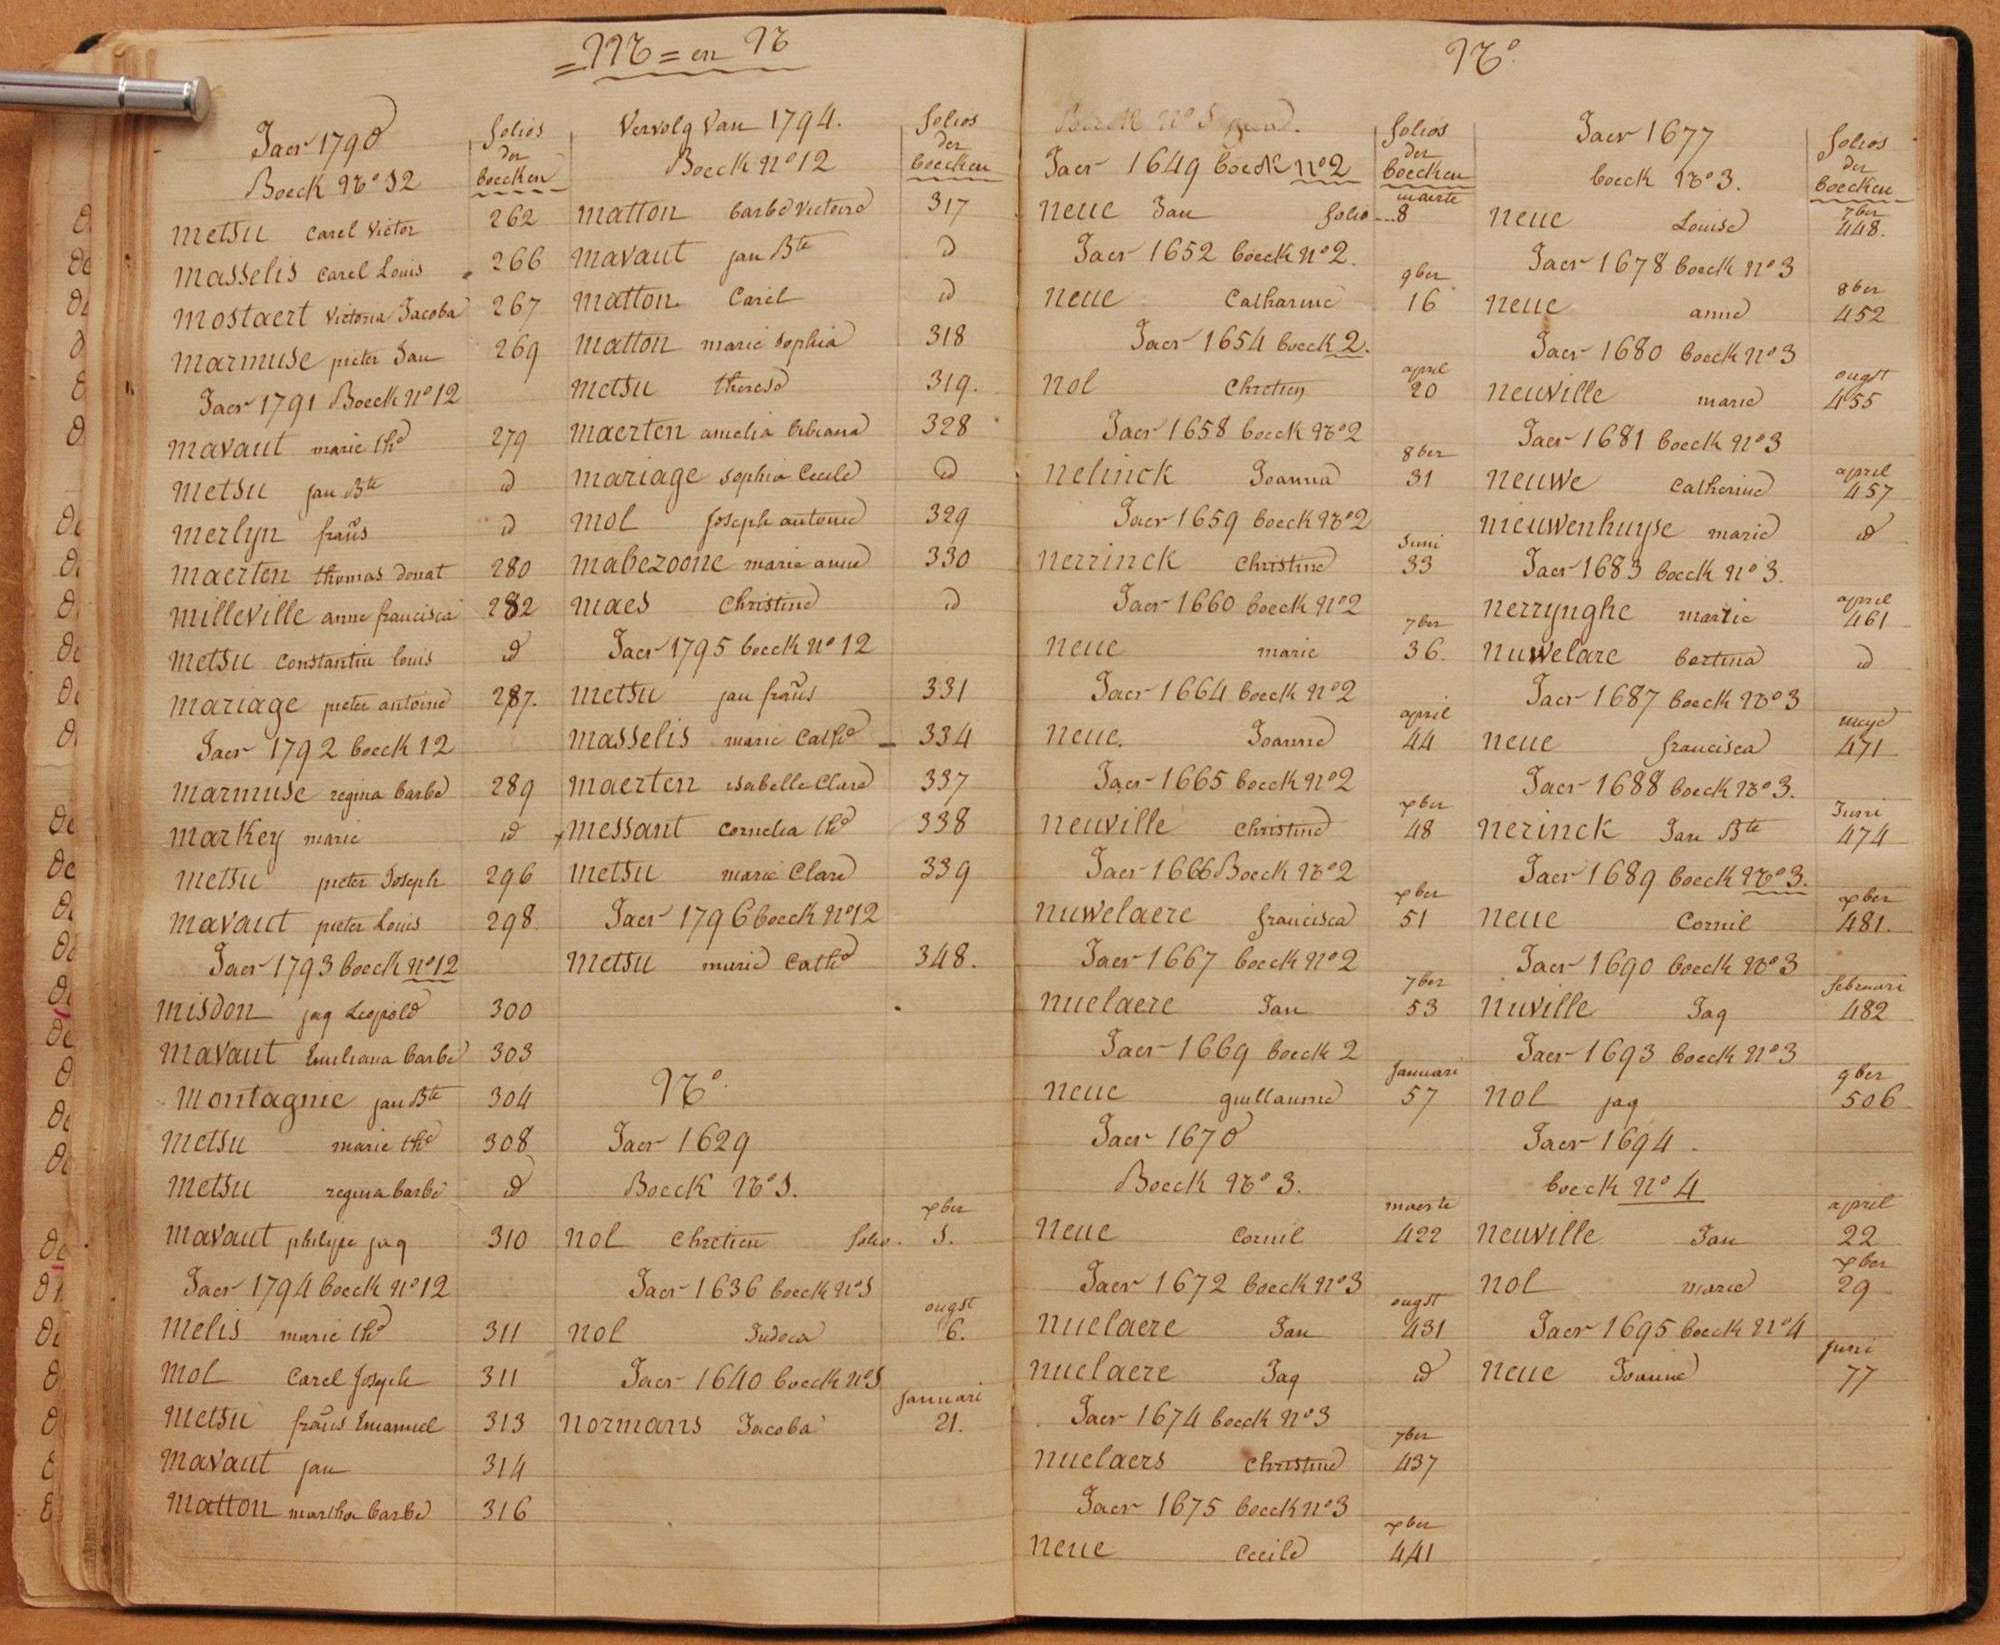 = M = en N
Jaer 1790
Boeck No 12
folios
der
boecken
metsu carel victor 262
masselis carel Louis 266
mostaert victoria Jacoba 267
marmuse pieter Jan 269
Jaer 1791 Boeck No 12
mavaut marie the 279
metsu jan Bte id
merlyn frans id
maerten thomas donat 280
milleville anne francisca 282
metsu constantin louis id
mariage pieter antoine 287.
Jaer 1792 boeck 12
marmuse regina barbe 289
markey marie id
metsu pieter Joseph 296
mavaut pieter Louis 298.
Jaer 1793 boeck no 12
misdon jaq Leopold 300
mavaut Emiliana barbe 303
montagnie jan Bte 304
metsu marie the 308
metsu regina barbe id
mavaut philype jaq 310
Jaer 1794 boeck no 12
melis marie the 311
mol carel Joseph 311
metsu frans Emanuel 313
mavaut jan 314
matton martha barbe 316
vervolg van 1794.
Boeck No 12
folios
der
boecken
matton barbe victoire 317
mavaut jan Bte id
matton Carel id
matton marie sophia 318
metsu therese 319.
maerten amelia bibiana 328
mariage sophia Cecile id
mol Joseph antoine 329
mabezoone marie anne 330
maes Christine id
Jaer 1795 boeck no 12
metsu jan frans 331
masselis marie Cathe 334
maerten isabelle Clare 337
messant cornelia the 338
metsu marie Clare 339
Jaer 1796 boeck No 12
metsu marie Cathe 348.
No.
Jaer 1629
Boeck No 1.
xber
nol chretien folio. 1.
Jaer 1636 boeck No 1
ougst
nol Judoca 6.
Jaer 1640 boeck No 1
Januari
normans Jacoba 21.
No.
Jaer 1649 boeck no 2
folios
der
boecken
maerte
neue Jan folio 8
Jaer 1652 boeck no 2.
9ber
neue Catharine 16
Jaer 1654 boeck 2.
april
nol Chretien 20
Jaer 1658 boeck No 2
8ber
nelinck Joanna 31
Jaer 1659 boeck No 2
Juni
nerrinck Christine 33
Jaer 1660 boeck No 2
7ber
neue marie 36.
Jaer 1664 boeck No 2
april
neue. Joanne 44
Jaer 1665 boeck no 2
xber
neuville Christine 48
Jaer 1666 Boeck No 2
xber
nuwelaere francisca 51
Jaer 1667 boeck No 2
7ber
nuelaere Jan 53
Jaer 1669 boeck 2
Januari
neue guillaume 57
Jaer 1670
Boeck No 3.
maerte
neue Cornil 422
Jaer 1672 boeck no 3
ougst
nuelaere Jan 431
nuelaere Jaq id
Jaer 1674 boeck no 3
7ber
nuelaers Christine 437
Jaer 1675 boeck no 3
xber
neue Cecile 441
Jaer 1677
boeck No 3.
folios
der
boecken
7ber
neue Louise 448.
Jaer 1678 boeck no 3
8ber
neue anne 452
Jaer 1680 boeck no 3
ougst
neuville marie 455
Jaer 1681 boeck no 3
april
neuwe catherine 457
nieuwenhuyse marie id
Jaer 1683 boeck no 3.
april
nerrynghe martie 461
nuwelare bertina id
Jaer 1687 boeck No 3
meye
neue francisca 471
Jaer 1688 boeck No 3.
Juni
nerinck Jan Bte 474
Jaer 1689 boeck No 3.
xber
neue Cornil 481.
Jaer 1690 boeck No 3
februari
nuville Jaq 482
Jaer 1693 boeck No 3
9ber
nol jaq 506
Jaer 1694.
boeck no 4
april
neuville Jan 22
xber
nol marie 29
Jaer 1695 boeck no 4
Juni
neue Joanne 77